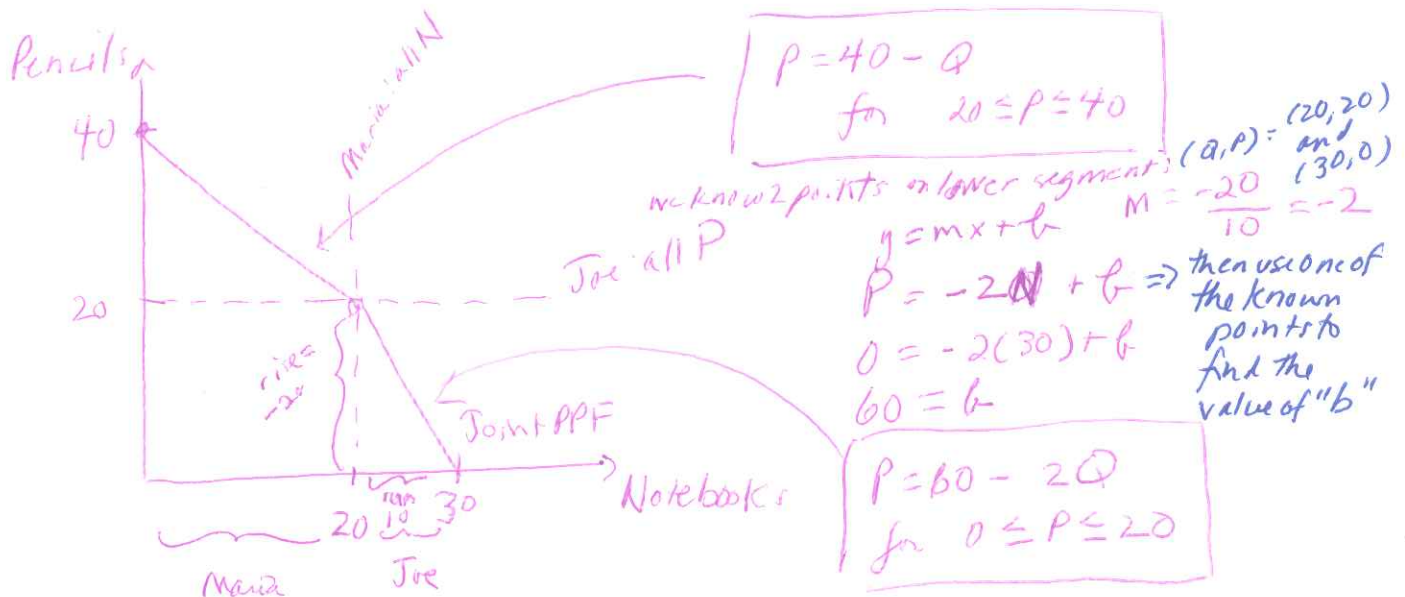 Pencils
40
20
Maria: all N
Joe: all P
rise =
-20
Joint PPF
Notebooks
20
run
10
30
Maria
Joe
P = 40 - Q
for 20 ≤ P ≤ 40
we know 2 points on lower segment: (Q,P) = (20,20)
and
(30,0)
M = -20/10 = -2
y = mx + b
P = -2N + b ⇒ then use one of
the known
points to
find the
value of "b"
0 = -2(30) + b
60 = b
P = 60 - 2Q
for 0 ≤ P ≤ 20